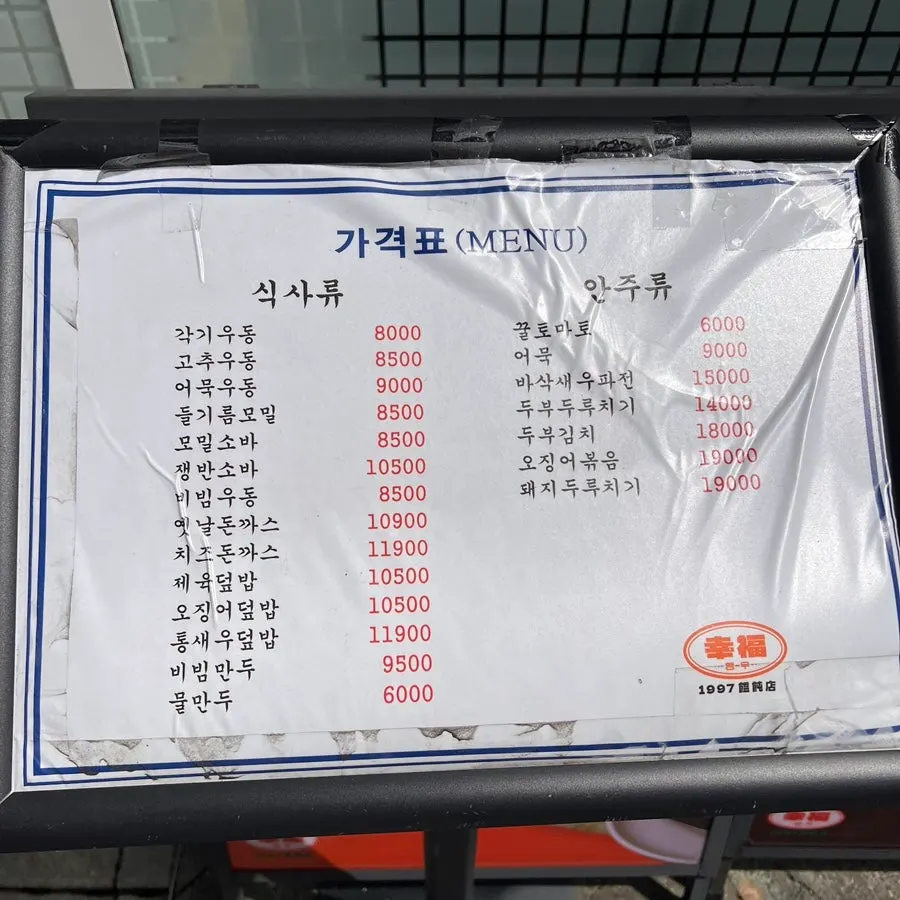 가격표(MENU)
식사류
각기우동 8000
고추우동 8500
어묵우동 9000
들기름모밀 8500
모밀소바 8500
쟁반소바 10500
비빔우동 8500
옛날돈까스 10900
치즈돈까스 11900
제육덮밥 10500
오징어덮밥 10500
통새우덮밥 11900
비빔만두 9500
물만두 6000
안주류
꿀토마토 6000
어묵 9000
바삭새우파전 15000
두부두루치기 14000
두부김치 18000
오징어볶음 19000
돼지두루치기 19000
幸福
1997 餛飩店